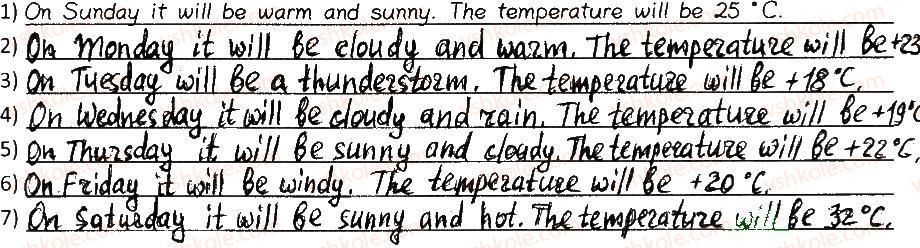 1) On Sunday it will be warm and sunny. The temperature will be 25 °C.
2) On Monday it will be cloudy and warm. The temperature will be +23
3) On Tuesday will be a thunderstorm. The temperature will be +18 °C.
4) On Wednesday it will be cloudy and rain. The temperature will be +19 °C
5) On Thursday it will be sunny and cloudy. The temperature will be +22 °C.
6) On Friday it will be windy. The temperature will be +20 °C.
7) On Saturday it will be sunny and hot. The temperature will be 32 °C.